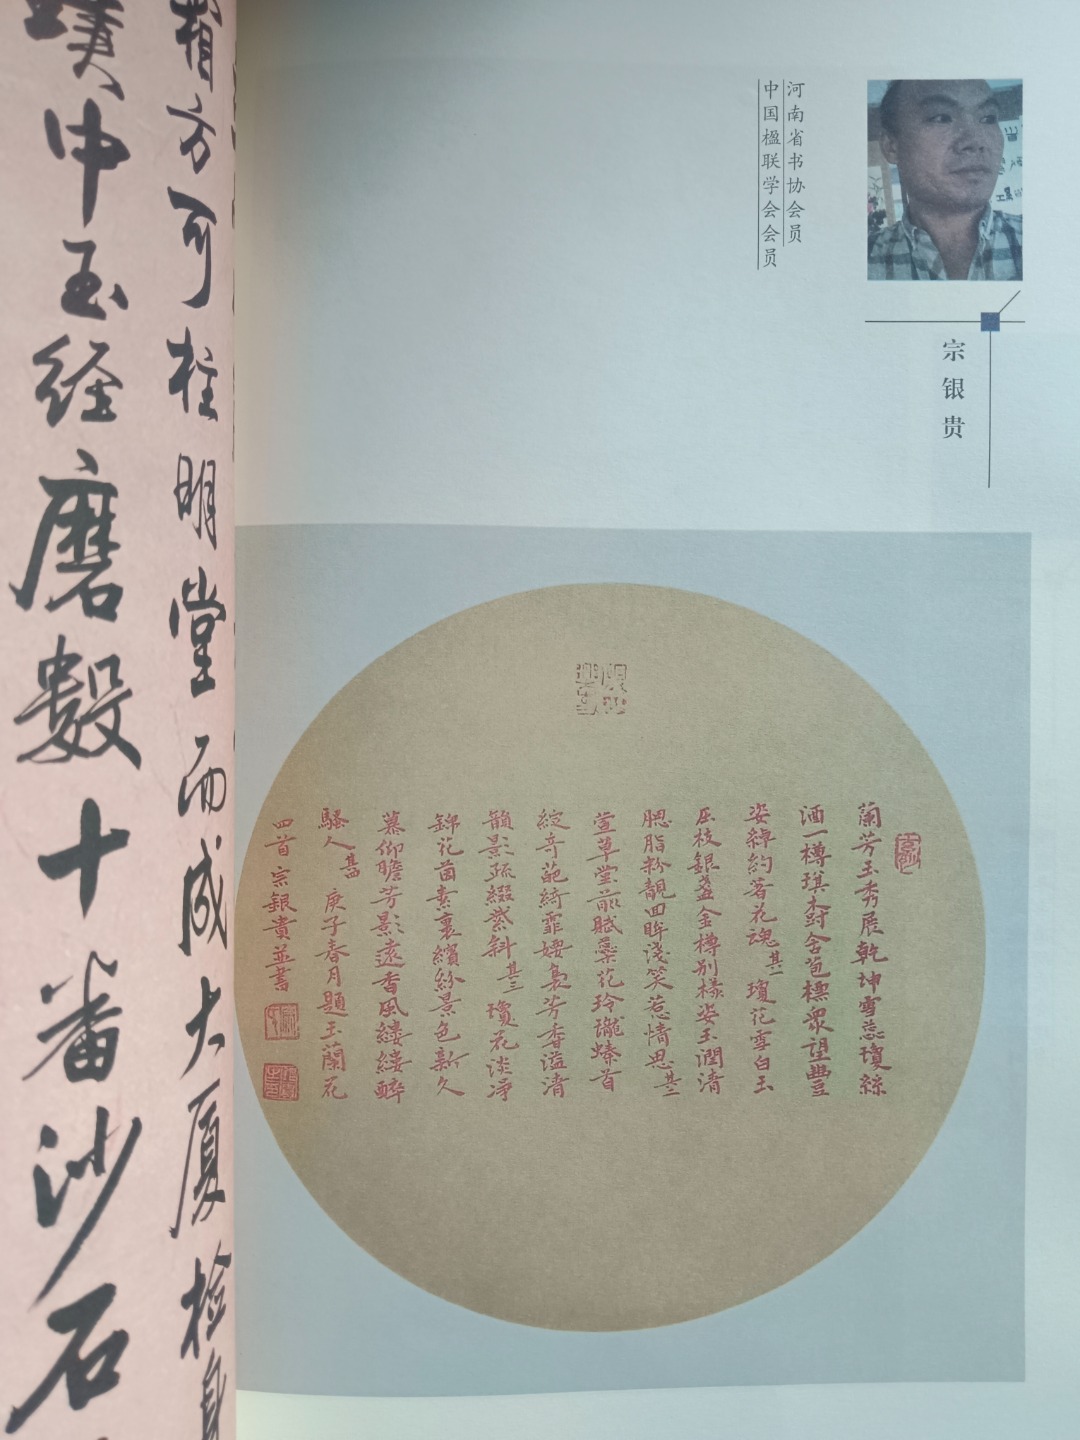 河南省书协会员
中国楹联学会会员
宗银贵
蘭芳玉秀展乾坤雪蕊瓊絲
酒一樽琪樹全苞標眾望豐
姿綽約著花魂其一瓊花雪白玉
压枝銀盞金樽別樣姿玉潤清
腮脂粉靚回眸淺笑惹情思其二
萱草堂前賦藥花玲瓏螓首
綻奇葩綺霏裊芳香溢清
韻影疏綴紫斜其三瓊花淡凈
錦花茵素裹繽紛景色新久
慕仰瞻芳影遠香風縷縷醉
騷人其四庚子春月題玉蘭花
四首宗銀貴並書
方可柱明堂而成大厦检身
璞中玉经磨數十番沙石